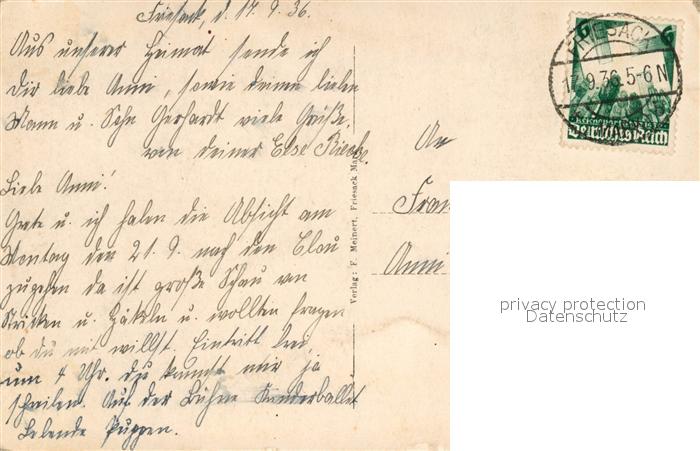 Friesack, d. 17. 9. 36.
Aus unserer Heimat sende ich
Dir liebe Anni, sowie deinem lieben
Mann u. Sohn Gerhardt viele Grüße,
von deiner Else Riecke.
Liebe Anni!
Grete u. ich haben die Absicht am
Montag den 21. 9. nach den Clou
zugehen da ist große Schau von
Stricken u. Häkeln u. wollten fragen
ob du mit willst. Eintritt frei
um 4 Uhr. du kannst mir ja
schreiben. Auf der Bühne Kinderballet
Lebende Puppen.
Verlag: F. Meinert, Friesack Mark
An
Frau
Anni
FRIESACK
17.9.36.5-6 N
6 6
Reichsparteitag 1936
Deutsches Reich
privacy protection
Datenschutz